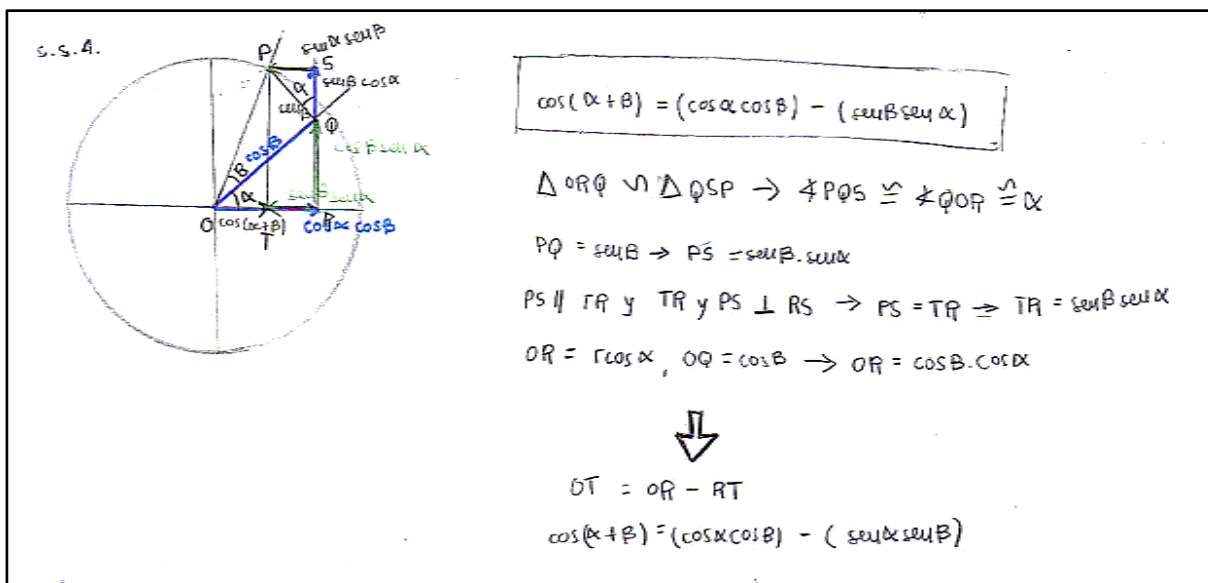 S.S.A.
P
senα senβ
S
α
senβ cosα
senβ
Q
β
cosβ
cosβ senα
senβ senα
α
O
cos(α+β)
T
R
cosα cosβ
cos(α+β) = (cosα cosβ) - (senβ senα)
Δ ORQ ∽ Δ QSP → ∢PQS ≅ ∢QOR ≅ α
PQ = senβ → PS = senβ.senα
PS ∥ TR y TR y PS ⊥ RS → PS = TR → TR = senβ senα
OR = rcosα, OQ = cosβ → OR = cosβ.cosα
⇩
OT = OR - RT
cos(α+β) = (cosα cosβ) - (senα senβ)